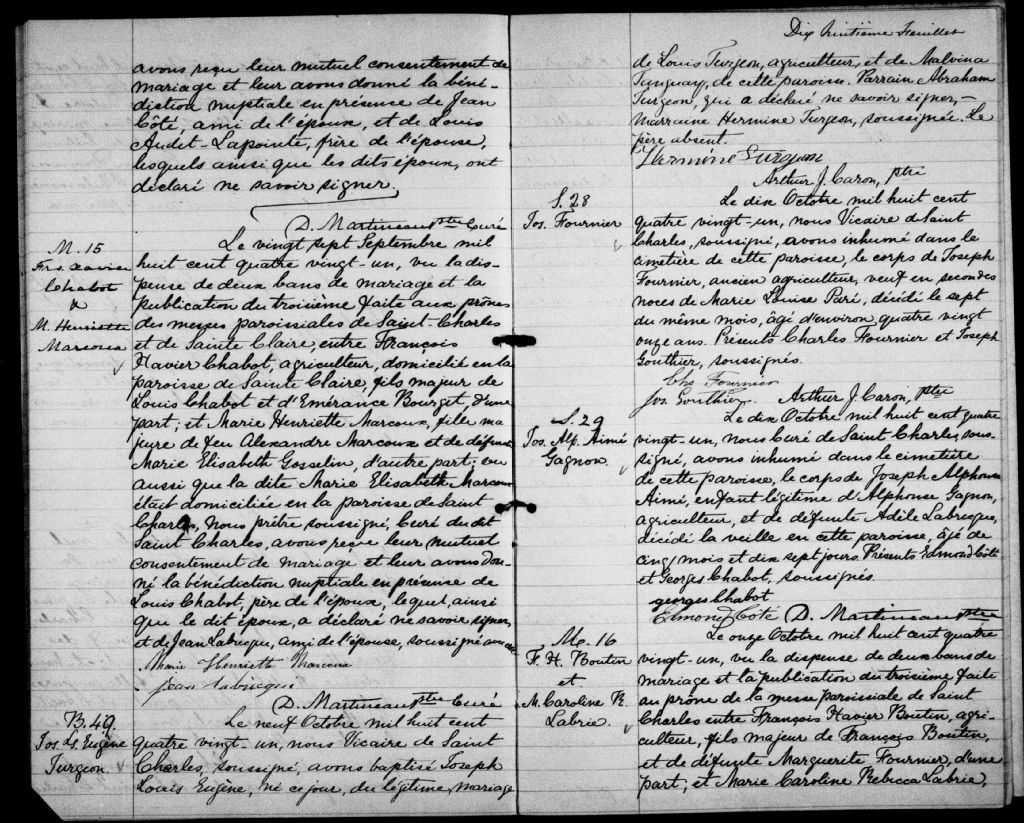 avons reçu leur mutuel consentement de
mariage et leur avons donné la béné-
diction nuptiale en présence de Jean
Côté, ami de l'époux, et de Louis
Audet-Lapointe, frère de l'épouse,
lesquels ainsi que les dits époux, ont
déclaré ne savoir signer.
D. Martineau ptre Curé
M. 15
Frs. Xavier
Chabot
&
M. Henriette
Marcoux
Le vingt sept Septembre mil
huit cent quatre vingt-un, vu la dis-
pense de deux bans de mariage et la
publication du troisième faite aux prônes
des messes paroissiales de Saint-Charles
et de Sainte Claire, entre François
Xavier Chabot, agriculteur, domicilié en la
paroisse de Sainte Claire, fils majeur de
Louis Chabot et d'Emérance Bourget, d'une
part; et Marie Henriette Marcoux, fille ma
jeure de feu Alexandre Marcoux et de défunte
Marie Elisabeth Gosselin, d'autre part; vu
aussi que la dite Marie Elisabeth Marcoux
était domiciliée en la paroisse de Saint
Charles, Nous prêtre soussigné, Curé du dit
Saint Charles, avons reçu leur mutuel
consentement de mariage et leur avons don-
né la bénédiction nuptiale en présence de
Louis Chabot, père de l'époux, lequel, ainsi
que le dit époux, a déclaré ne savoir signer,
et de Jean Labrecque, ami de l'épouse, soussigné avec elle
Marie Henriett Marcoux
jean labrecque
D. Martineau ptre Curé
B. 49.
Jos. Ls Eugène
Turgeon
Le neuf Octobre mil huit cent
quatre vingt-un, nous Vicaire de Saint
Charles, soussigné, avons baptisé Joseph
Louis Eugène, né ce jour, du légitime mariage
Dix huitième Feuillet
de Louis Turgeon, agriculteur, et de Malvina
Tanguay, de cette paroisse. Parrain Abraham
Turgeon, qui a déclaré ne savoir signer,-
Marraine Hermine Turgeon, soussignée. Le
père absent.
Hermine Turgeon
Arthur J. Caron, ptre
S. 28
Jos. Fournier
Le dix Octobre mil huit cent
quatre vingt-un, nous Vicaire de Saint
Charles, soussigné, avons inhumé dans le
cimetière de cette paroisse, le corps de Joseph
Fournier, ancien agriculteur, veuf en secondes
noces de Marie Louise Paré, décédé le sept
du même mois, âgé d'environ quatre vingt
onze ans. Présents Charles Fournier et Joseph
Gouthier, soussignés.
Chs Fournier
Jos. Gouthier. Arthur J. Caron, ptre
S. 29
Jos. Alp. Aimé
Gagnon
Le dix Octobre mil huit cent quatre
vingt-un, nous Curé de Saint Charles, sous-
signé, avons inhumé dans le cimetière
de cette paroisse, le corps de Joseph Alphonse
Aimé, enfant légitime d'Alphonse Gagnon,
agriculteur, et de défunte Adile Labrecque,
décédé la veille en cette paroisse, âgé de
cinq mois et dix sept jours. Présents Edmond Côté
et Georges Chabot, soussignés.
georges Chabot
Edmond Côté D. Martineau ptre
M. 16
F. H. Boutin
et
M. Caroline R.
Labrie.
Le onze Octobre mil huit cent quatre
vingt-un, vu la dispense de deux bans de
mariage et la publication du troisième faite
au prône de la messe paroissiale de Saint
Charles entre François Xavier Boutin, agri-
culteur, fils majeur de François Boutin,
et de défunte Marguerite Fournier, d'une
part, et Marie Caroline Rebecca Labrie,